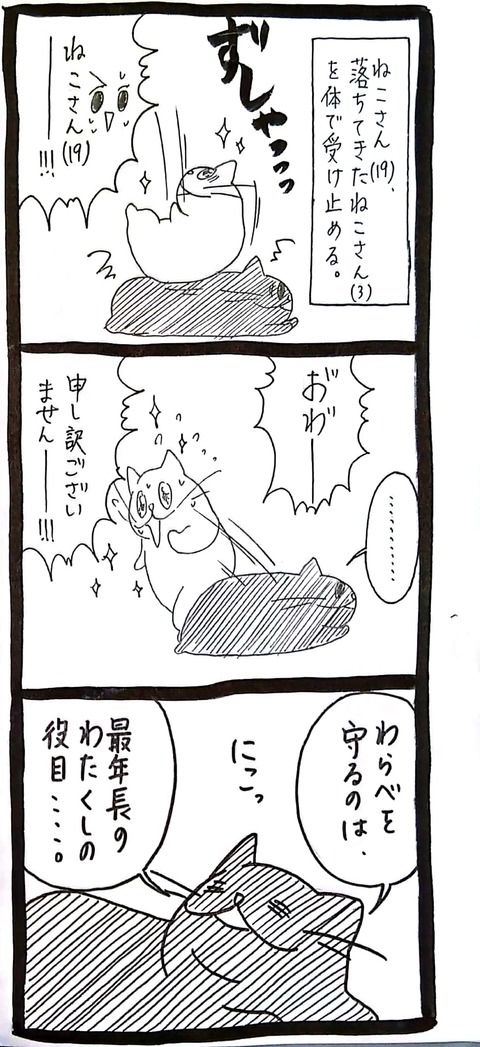 ねこさん(19)、
落ちてきたねこさん(3)
を体で受け止める。
ずしゃっっっ
ねこさん(19)
――!!!
おわ゛――
…………
申し訳ござい
ません――!!!
わらべを
守るのは、
にこっ
最年長の
わたくしの
役目……。